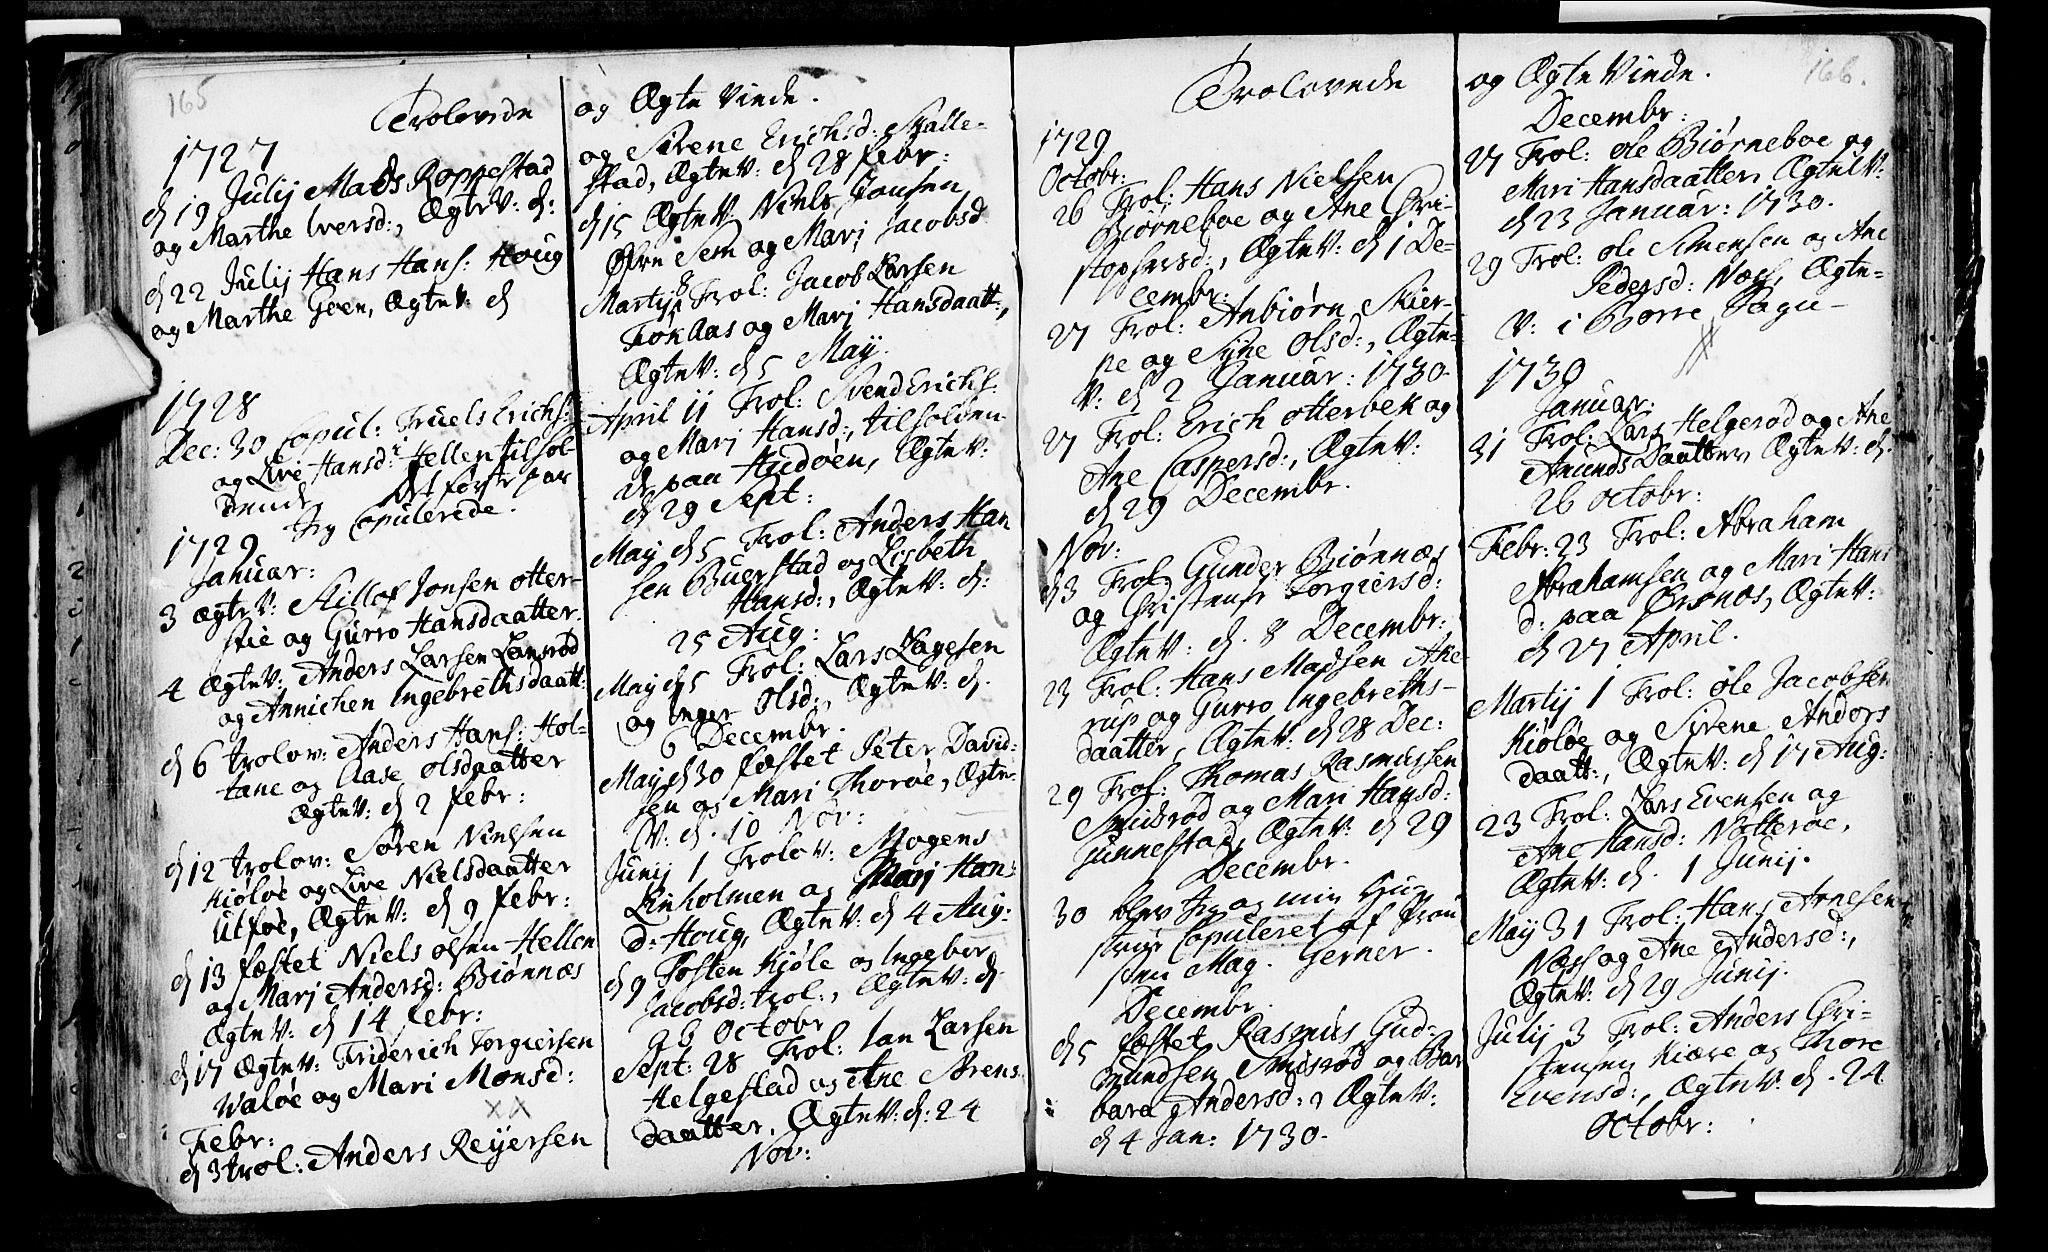 165
Trolovede
1727
d 19 Julij Mads Roppestad
og Marthe Iversd:, Ægtev: d:
d 22 Julij Hans Hans: Houg
og Marthe Goen, Ægtev: d
1728
Dec: 30 Copul: Truels Erichs:
og Live Hansd: i Hellen tilhol-
dende, Det første par
Jeg Copulerede.
1729
Januar:
3 ægtev: Killof Jonsen otter-
stie og Gurro Hansdaatter.
4 Ægtev: Anders Larsen Lansrød
og Annichen Ingebrethsdaatt:
d 6 trolov: Anders Hans: Hol-
tane og Aase olsdaatter
ægtev: d 2 febr:
d 12 trolov: Søren Nielsen
Kioløe og Live Nielsdaatter
Utføe, Ægtev: d 9 febr:
d 13 fæstet Niels olsen Hellen
og Marj Andersd: Biønnæs
Ægtev: d 14 febr:
d 17 Ægtev: Friderich Torgiersen
Waløe og Mari Monsd:
xx
Febr:
d 3 trol: Anders Reyersen
og Ægte Viede.
og Sirene Erichsd: Skalle-
stad, Ægtev: d 28 febr:
d 15 Ægtev Niels Jansen
Øfre Sem og Marj Jacobsd
Martij 8 Trol: Jacob Larsen
Fonaas og Marj Hansdaatt:,
Ægtev: d 5 May.
April 11 Trol: Svend Erichs:
og Marj Hansd:, tilholden-
de paa Hudøen, Ægtev:
d 29 Sept:
May d 5 Trol: Anders Han
sen Buerstad og Lisbeth
Hansd:, Ægtev: d:
25 Aug:
May d 5 Trol: Lars Lagesen
og Inger Olsd:, Ægtev: d.
6 Decembr.
May d 30 fæstet Peter David-
sen og Mari Thorøe, Ægte-
V: d. 10 Nov:
Junij 1 Trolov: Mogens
Linholmen og Marj Han:
d: Houg, Ægtev: d 4 Aug:
d 9 Tosten Kiøle og Ingebor
Jacobsd: trol:, Ægtev: d
26 Octobr
Sept: 28 Trol: Ian Larsen
Helgestad og Ane Sørens
daatter, Ægtev: d: 24
Nov:
Trolovede
1729
Octobr:
26 Trol: Hans Nielsen
Biørneboe og Ane Chri-
stophersd:, Ægtev: d 1 De-
cembr:
27 Trol: Anbiørn Skier-
pe og Syne Olsd:, Ægte-
V: d 2 Januar: 1730.
27 Trol: Erich otterbek og
Ane Caspersd:, Ægtev:
d 29 Decembr.
Nov:
d 3 Trol Gunder Biønnæs
og Christense Torgiersd:
Ægtev: d. 8 Decembr:
23 Trol: Hans Madsen Ase-
rup og Gurro Ingebreths-
daatter, Ægtev: d 28 Dec:
29 Trol: Thomas Rasmussen
Smidsrød og Mari Hansd:
Junnestad, Ægtev: d 29
Decembr.
30 blev Jeg og min Hu-
strue Copuleret af Prou
sten Mag. Gerner.
Decembr.
d 5 fæstet Rasmus Gud-
mundsen Smidsrød og Bar
bara Andersd:, Ægtev:
d 4 Jan: 1730.
166.
og Ægte Viede.
Decembr:
27 Trol: ole Biørneboe og
Mari Hansdaatter, Ægtev:
d 23 Januar: 1730.
29 Trol: ole Simensen og Ane
Pedersd: Næss, Ægte-
V: i Borre Sogn
1730
Januar:
31 Trol: Lars Helgerød og Ane
Anunds Daatter, Ægtev: d.
26 octobr:
Febr: 23 Trol: Abraham
Abrahamsen og Mari Hans
d: paa Ørsnæs, Ægtev:
d 27 April.
Martij 1 Trol: ole Jacobsen
Kioløe og Sirene Anders
daatt:, Ægtev: d 17 Aug:
23 Trol: Lars Evensen og
Ane Hansd: Nøtterøe,
Ægtev: d. 1 Junij.
May 31 Trol: Hans Arnesen
Næss og Ane Andersd:,
Ægtev: d 29 Junij.
Julij 3 Trol: Anders Chri-
stensen Kiære og Thore
Evensd:, Ægtev. d. 24
Octobr: